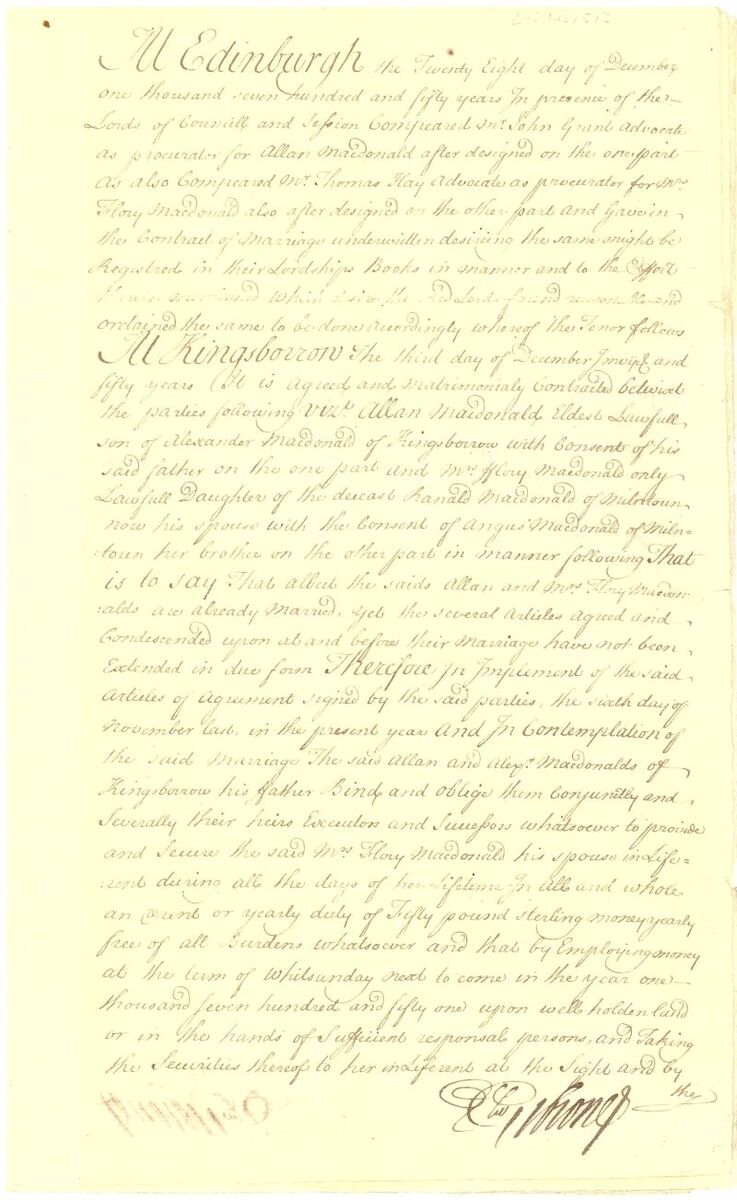 At Edinburgh the Twenty Eight day of December
one thousand seven hundred and fifty years In presence of the
Lords of Councill and Session Compeared Mr. John Grant Advocate
as procurator for Allan Macdonald after designed on the one part
As also Compeared Mr. Thomas Hay Advocate as procurator for Mrs
Flory Macdonald also after designed on the other part And Gave in
the Contract of Marriage underwritten desireing the same might be
Registred in their Lordships Books in manner and to the Effect
therein mentioned which desire the said Lords found reasonable and
ordained the same to be done accordingly whereof the Tenor follows
At Kingsborrow The third day of December Jmvijc and
fifty years It is Agreed and Matrimonialy Contracted betwixt
the parties following Vizt. Allan Macdonald Eldest Lawfull
son of Alexander Macdonald of Kingsborrow with Consent of his
said father on the one part and Mrs. fflory Macdonald only
Lawfull Daughter of the deceast Ranald Macdonald of Milntoun
now his spouse with the Consent of Angus Macdonald of Miln=
=toun her brother on the other part in manner following That
is to say That albeit the saids Allan and Mrs. Flory Macdon
:alds are already Married, yet the several Articles agreed and
Condescended upon at and before their Marriage have not been
Extended in due form Therefore In Implement of the said
Articles of Agreement signed by the said parties, the sixth day of
November last, in the present year And In Contemplation of
the said Marriage The said Allan and Alexr. Macdonalds of
Kingsborrow his ffather Bind and oblige them Conjunctly and
Severally their heirs Executors and Successors whatsoever to provide
and Secure the said Mrs Flory Macdonald his spouse in Life=
:rent during all the days of her Lifetime In All and whole
an @rent or yearly duty of Fifty pound sterling money yearly
free of all Burdens whatsoever and that by Employing money
at the term of Whitsunday next to come in the year one
thousand seven hundred and fifty one upon well holden land
or in the hands of Sufficient responsal persons, and Taking
the Securities thereof to her in Liferent at the Sight and by
the